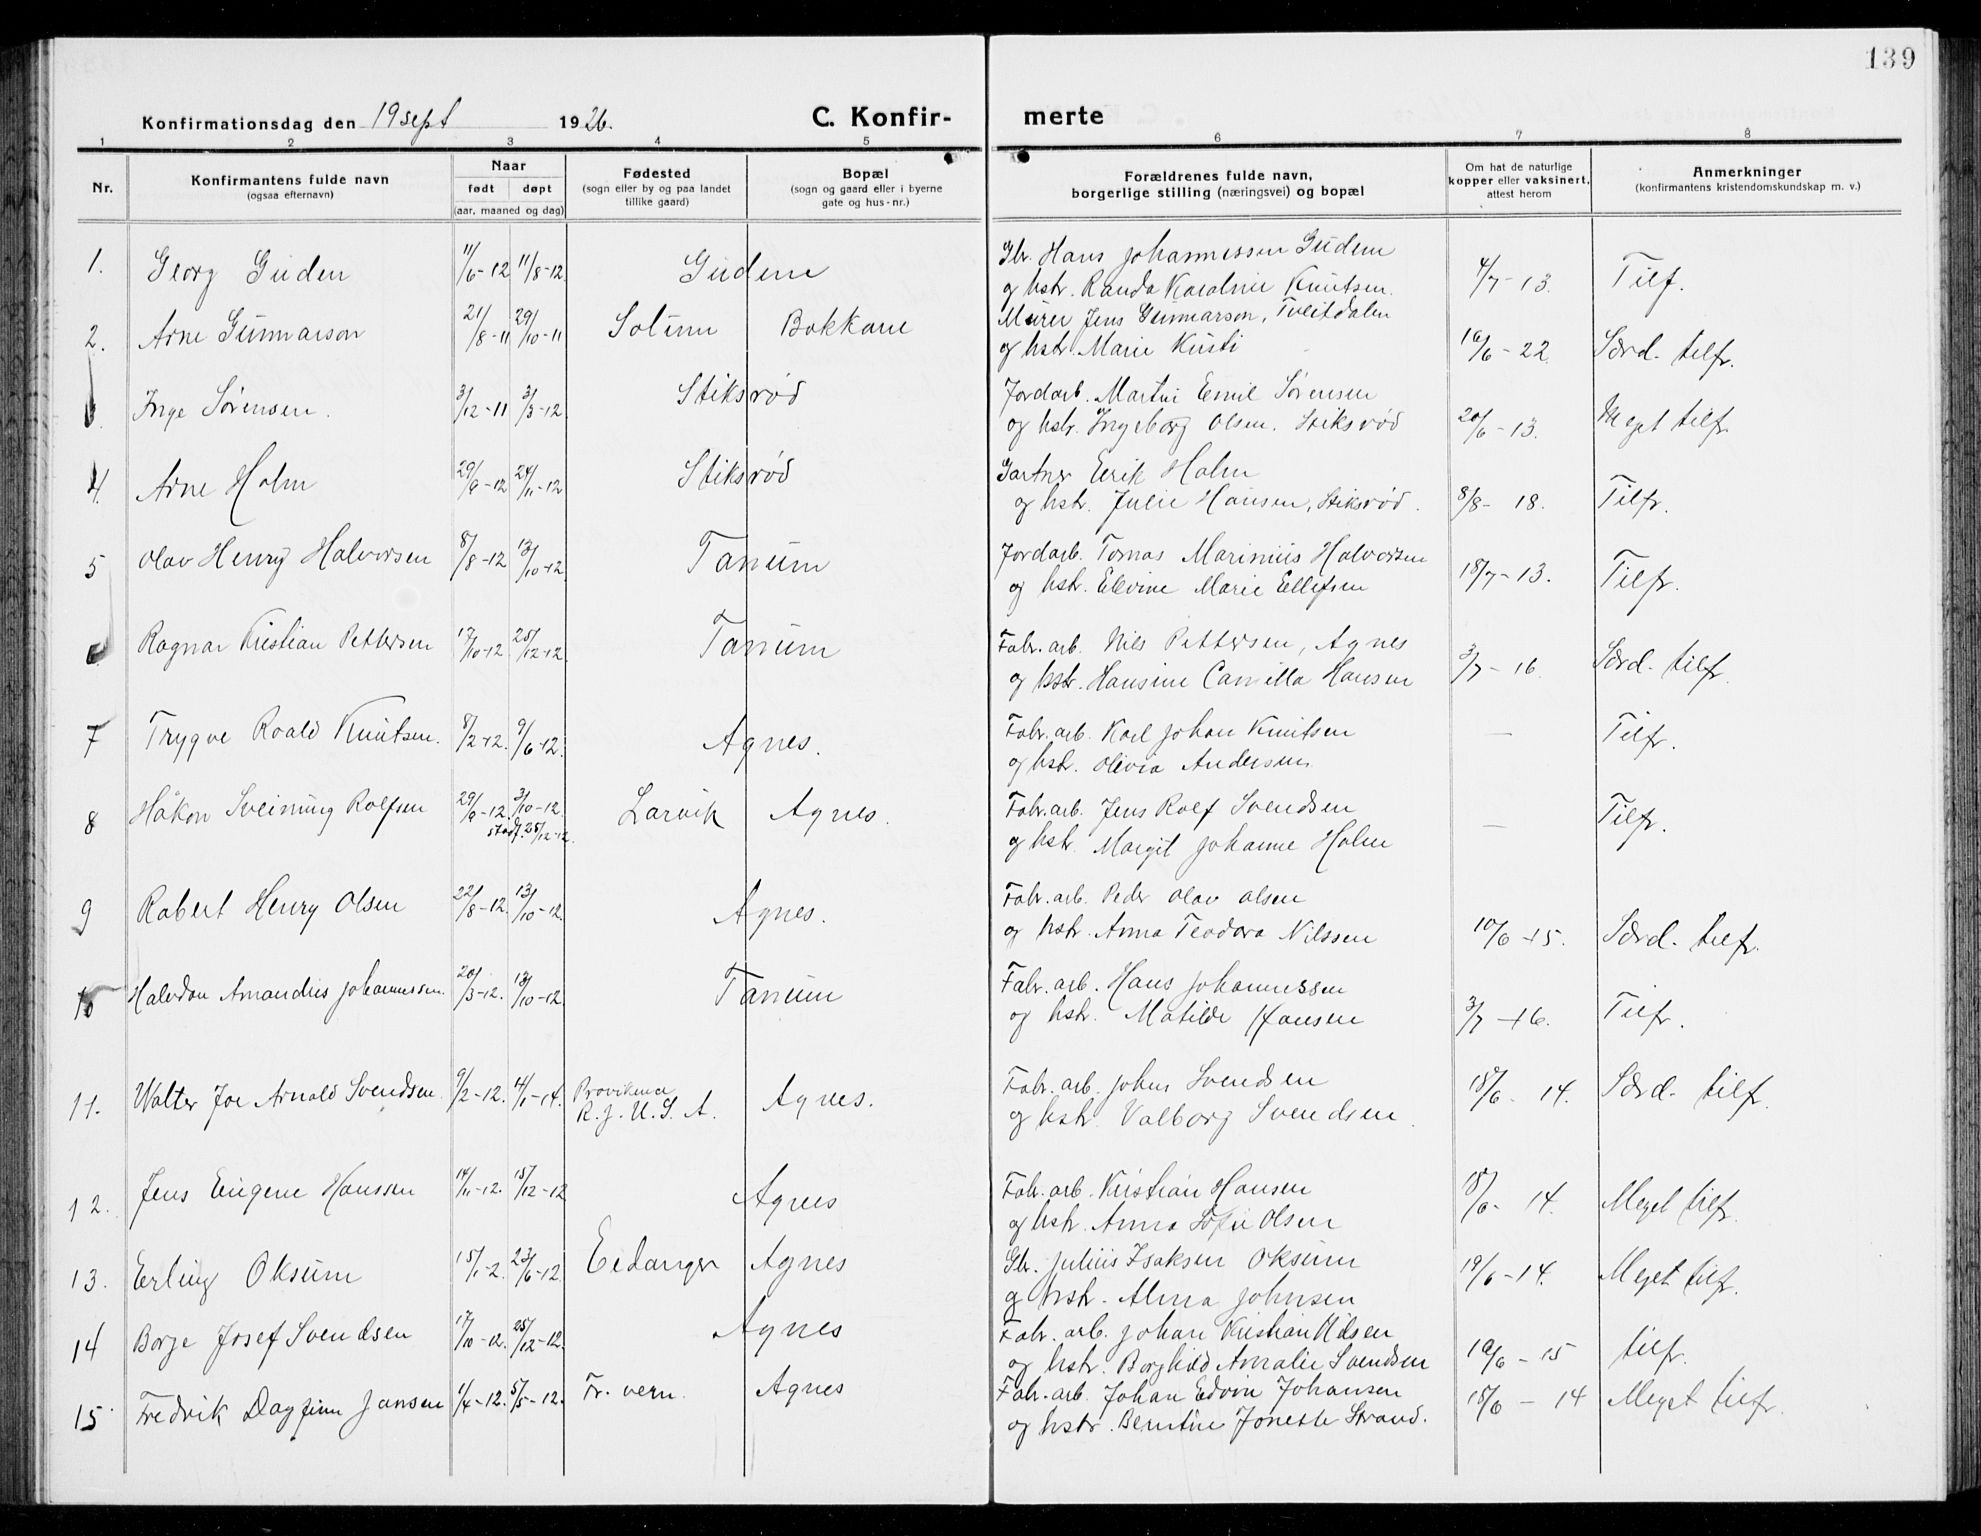 139
Konfirmationsdag den 19 sept 1926.
C. Konfirmerte
1 2 3 4 5 6 7 8
Nr.
Konfirmantens fulde navn
(ogsaa efternavn)
Naar
født døpt
(aar, maaned og dag)
Fødested
(sogn eller by og paa landet
tillike gaard)
Bopæl
(sogn og gaard eller i byerne
gate og hus-nr.)
Forældrenes fulde navn,
borgerlige stilling (næringsvei) og bopæl
Om hat de naturlige
kopper eller vaksinert,
attest herom
Anmerkninger
(konfirmantens kristendomskundskap m. v.)
1. Georg Gudem 11/6-12 11/8-12 Gudem
Gbr. Hans Johannessen Gudem
og hstr. Randa Karoline Knutsen. 4/7-13. Tilf.
2. Arne Gunnarson 21/8-11 29/10-11 Solum Bakkane
Murer Jens Gunnarson, Tveitdalen
og hstr. Marie Kristi 16/6-22 Særd. tilfr.
3. Inge Sørensen. 3/12-11 3/3-12 Stiksrød
Jordarb. Martin Emil Sørensen
og hstr. Ingeborg Olsen. Stiksrød 20/6-13. Meget tilfr.
4. Arne Holm 29/9-12 24/11-12 Stiksrød
Gartner Eerik Holm
og hstr. Julie Hansen, Stiksrød. 8/8-18. Tilfr.
5 Olav Henry Halvorsen 8/8-12 13/10-12 Tanum
Jordarb. Tomas Marinius Halvorsen
og hstr. Elevine Marie Ellefsen 18/7-13. Tilfr.
6 Ragnar Kristian Pettersen 17/10-12 25/12-12 Tanum
Fabr. arb. Nils Pettersen, Agnes
og hstr. Hansine Camilla Hansen 3/7-16. Særd. tilfr.
7 Trygve Roald Knutsen. 8/2-12. 9/6-12. Agnes.
Fabr. arb. Karl Johan Knutsen
og hstr. Olivia Andersen — Tilfr.
8 Håkon Sveinung Rolfsen 29/9-12. 3/10-12. Larvik Agnes.
stadf. 25/12-12.
Fabr. arb. Jens Rolf Svendsen
og hstr. Margit Johanne Holm — Tilfr.
9 Robert Henry Olsen 22/8-12. 13/10-12. Agnes.
Fabr. arb. Peder Olav Olsen
og hstr. Anna Teodora Nilssen 10/6-15. Særd. tilfr.
10 Halvdan Amandus Johannessen. 20/3-12. 13/10-12. Tanum
Fabr. arb. Hans Johannessen
og hstr. Matilde Hansen 3/7-16. Tilfr.
11. Walter Joe Arnold Svendsen. 9/2-12. 4/1-14. R.J. U.S.A. Agnes.
Fabr. arb. Johns Svendsen
og hstr. Valborg Svendsen. 18/6-14. Særd. tilfr.
12. Jens Eugene Hanssen 14/11-12. 15/12-12 Agnes
Fabr. arb. Kristian Hansen
og hstr. Anna Sofie Olsen 18/6-14. Meget tilfr.
13. Erling Oksum 15/1-2. 23/6-12. Eidanger Agnes
Gbr. Julius Isaksen Oksum
og hstr. Alma Johnsen 19/6-14. Meget tilfr.
14 Borge Josef Svendsen 17/10-12. 25/12-12. Agnes
Fabr. arb. Johan Kristian Nilsen
og hstr. Borghild Amalie Svendsen 10/6-15 tilfr.
15 Fredrik Dagfinn Jansen 1/4-12. 5/5-12. Fr. vern. Agnes
Fabr. arb. Johan Edvin Johansen
og hstr. Berntine Jonette Strand. 18/6-14 Meget tilfr.